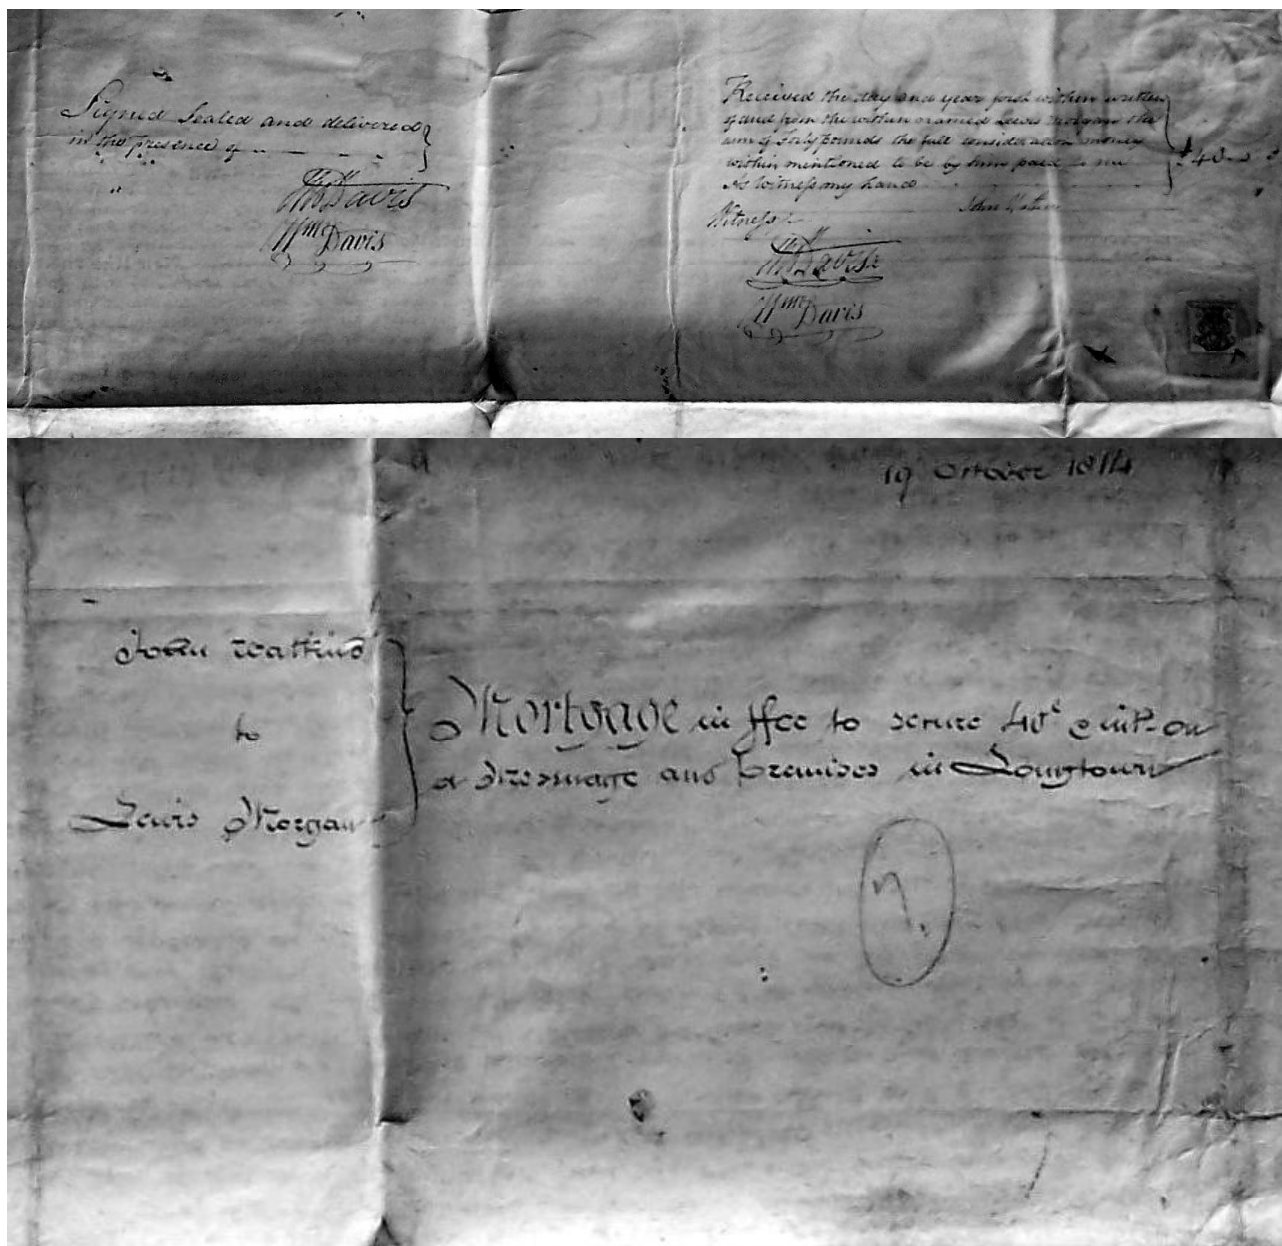 Signed Sealed and delivered
in the presence of
Thos Davis
Wm Davis
Received the day and year first within written
of and from the within named Lewis Morgan the
sum of Forty pounds the full consideration money
within mentioned to be by him paid to me
As Witness my hand
£40 " 0 " 0
John Watkins
Witness
Thos Davis
Wm Davis
19 October 1814
John Watkins
to
Lewis Morgan
Mortgage in ffee to secure 40£ & intt on
a Messuage and Premises in Longtown
7.